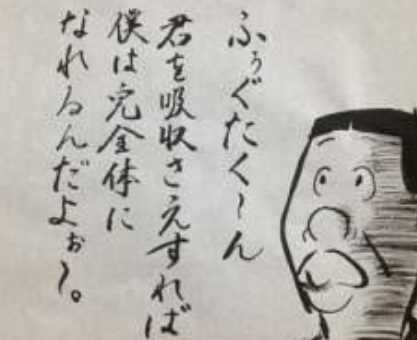 ふぅぐたく〜ん
君を吸収さえすれば
僕は完全体に
なれるんだよぉ〜。